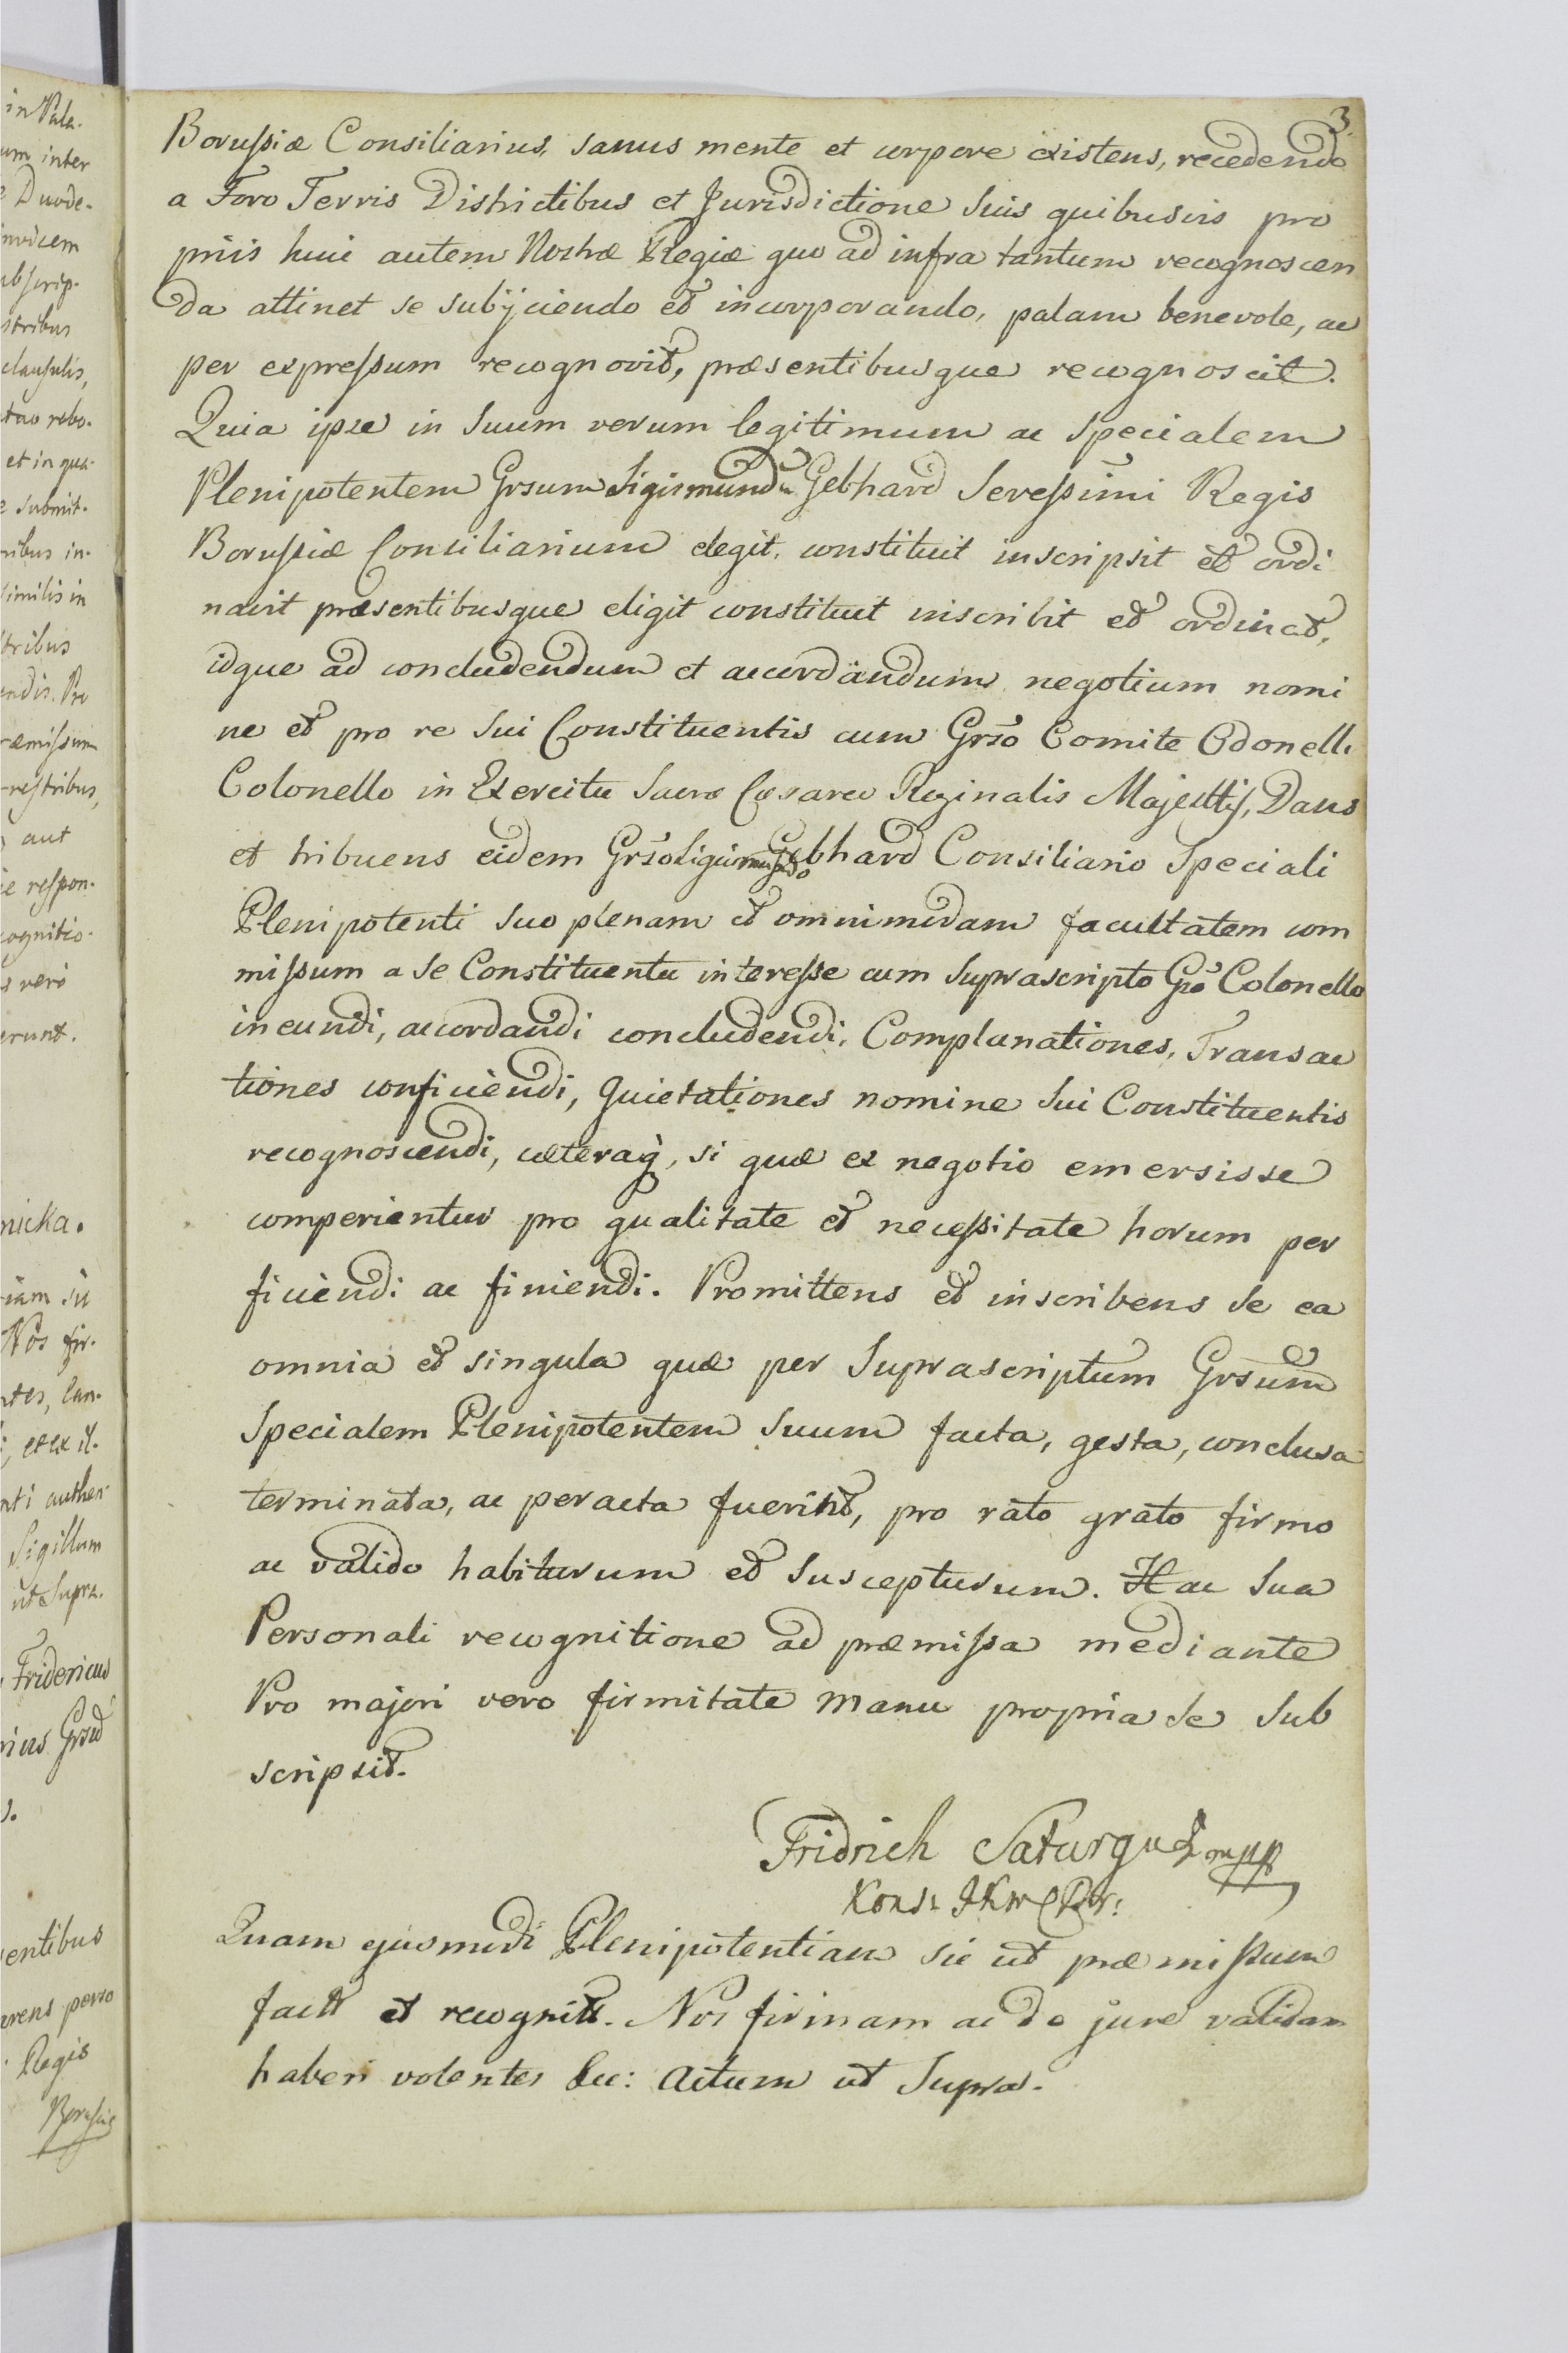 3.
Borussiæ Consiliarius, sanus mente et corpore existens, recedendo
a Foro Terris Districtibus et Jurisdictione Suis quibusvis pro
priis huic autem Nostræ Regiæ quo ad infra tantum recognoscen
da attinet se subijciendo et incorporando, palam benevole, ac
per expressum recognovit, præsentibusque recognoscit.
Quia ipse in Suum verum legitimum ac Specialem
Plenipotentem Grsum Sigismundu Gebhard Seressimi Regis
Borussiæ Consiliarium elegit, constituit inscripsit et ordi
navit præsentibusque eligit constituit inscribit et ordinat,
idque ad concludendum et accordandum negotium nomi
ne et pro re Sui Constituentis cum Grso Comite Odonelli
Colonello in Exercitu Sacræ Cæsareo Reginalis Majesttis, Dans
et tribuens eidem Grso Sigismundo Gebhard Consiliario Speciali
Plenipotenti Suo plenam et omnimodam facultatem com
missum a Se Constituente interesse cum Suprascripto Gro Colonello
ineundi, accordandi concludendi, Complanationes, Transac
tiones conficiendi, Quietationes nomine Sui Constituentis
recognoscendi, cæteraq, si quæ ex negotio emersisse
comperientur pro qualitate et necessitate horum per
ficiendi ac finiendi. Promittens et inscribens Se ea
omnia et singula quæ per Suprascriptum Grsum
Specialem Plenipotentem Suum facta, gesta, conclusa
terminata, ac peracta fuerint, pro rato grato firmo
ac valido habiturum et Suscepturum. Hac Sua
Personali recognitione ad præmissa mediante
Pro majori vero firmitate manu propria Se Sub
scripsit.
Fridrich Saturgus mpp
Kons: JKM Pr:
Quam ejusmodi Plenipotentiam sic ut præmissum
factt et recognitt. Nos firmam ac de jure validam
haberi volentes &c: Actum ut Supra.